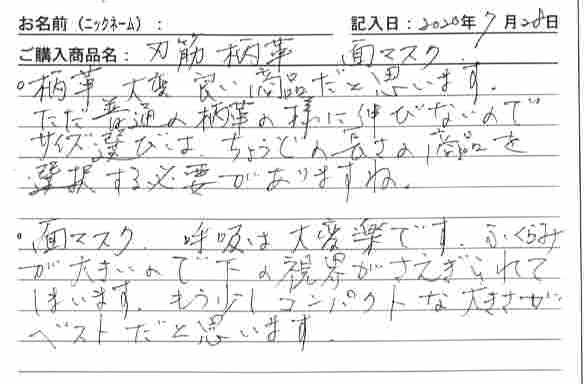 お名前（ニックネーム）： 記入日：2020年7月28日
ご購入商品名：刃筋柄革 面マスク
○柄革 大変良い商品だと思います。
ただ普通の柄革の様に伸びないので
サイズ選びは、ちょうどの長さの商品を
選択する必要がありますね。
○面マスク、呼吸は大変楽です。ふくらみ
が大きいので下の視界がさえぎられて
しまいます。もう少しコンパクトな大きさが
ベストだと思います。